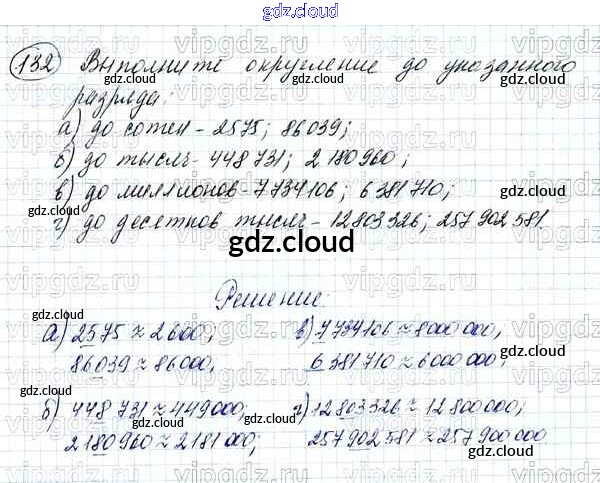 gdz.cloud
132 Выполните округление до указанного
разряда:
а) до сотен - 2575; 86039;
б) до тысяч - 448 731; 2 180 960;
в) до миллионов - 7 734 106; 6 381 710;
г) до десятков тысяч - 12 803 326; 257 902 581.
gdz.cloud
Решение:
а) 2575 ≈ 2600; в) 7 734 106 ≈ 8 000 000,
86039 ≈ 86000, 6 381 710 ≈ 6 000 000;
б) 448 731 ≈ 449 000; г) 12 803 326 ≈ 12 800 000;
2 180 960 ≈ 2 181 000; 257 902 581 ≈ 257 900 000